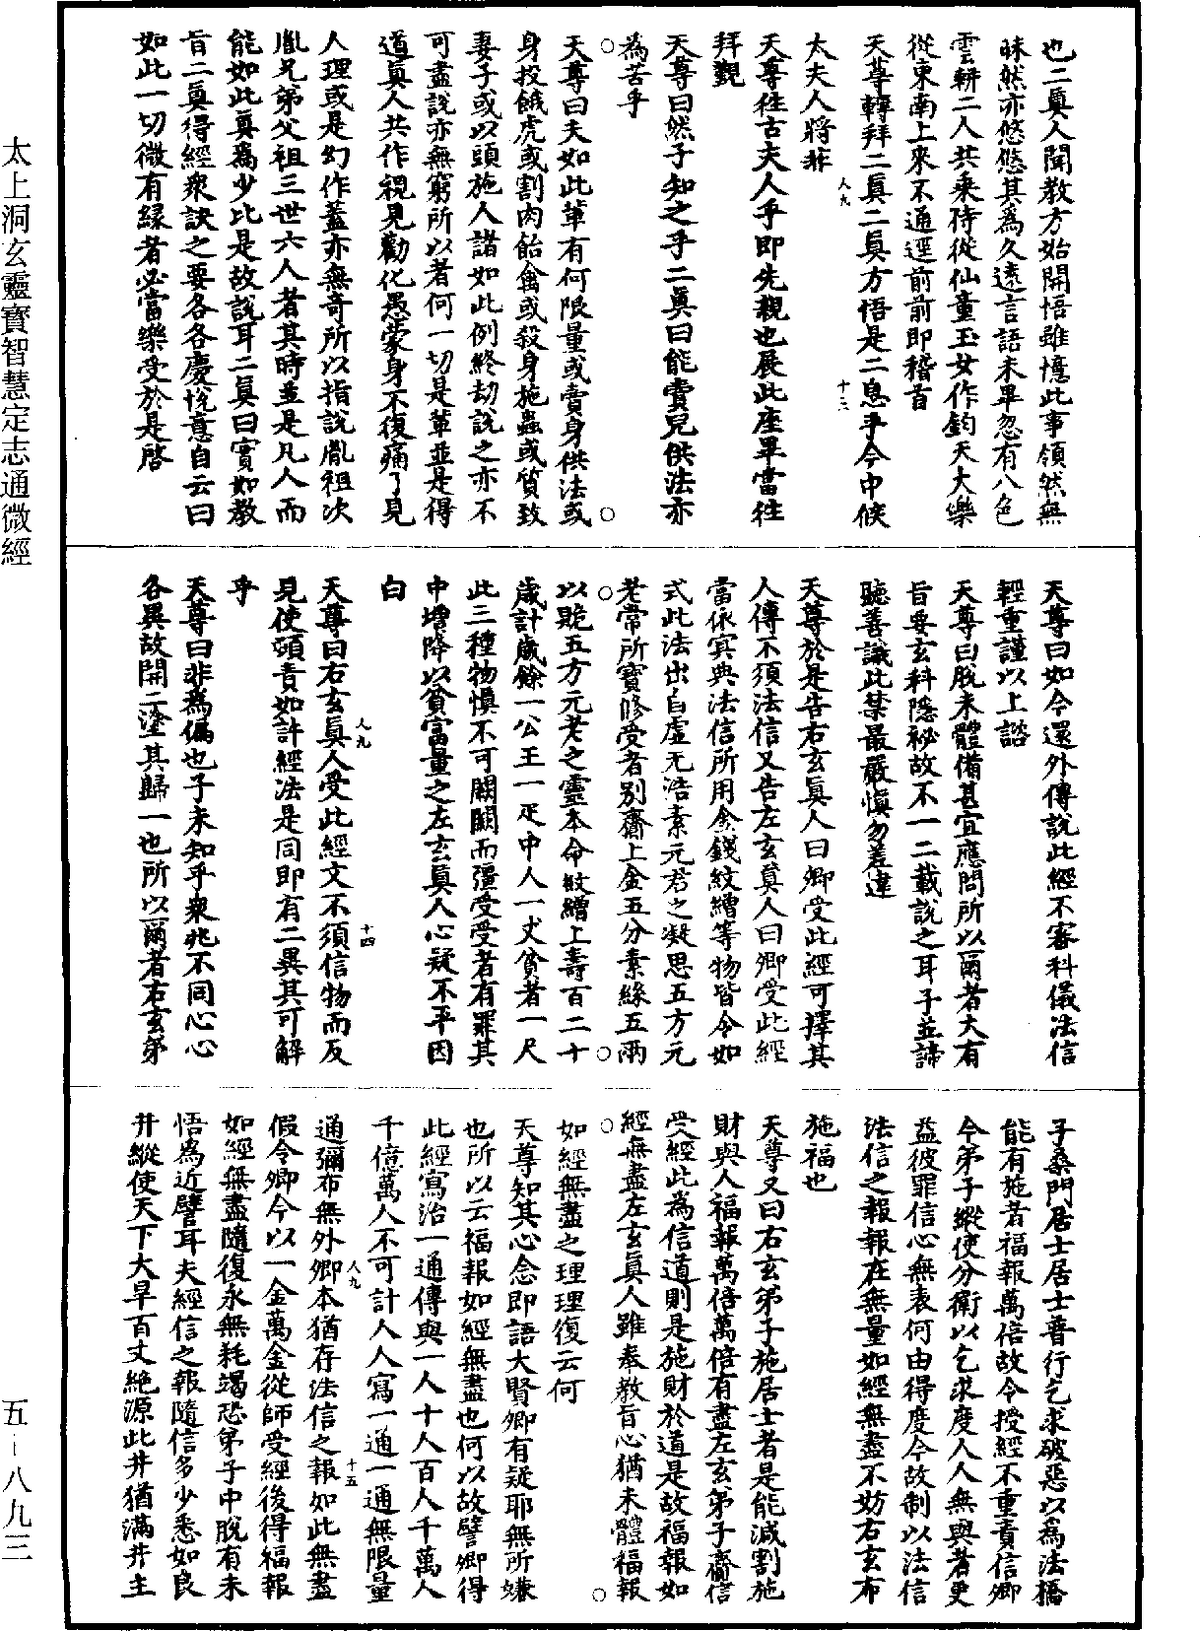 太上洞玄靈寶智慧定志通微經
五–八九三
也二真人聞教方始開悟雖憶此事領然無
昧然亦悠悠其為久遠言語未畢忽有八色
雲軿二人共乘侍從仙童玉女作鈞天大樂
從東南上來不通逕前前即稽首
天尊轉拜二真二真方悟是二息乎今中候
太夫人將非
天尊往古夫人乎即先親也展此座畢當往
拜覲
天尊曰然子知之乎二真曰能賣兒供法亦
為苦乎
天尊曰夫如此輩有何限量或賣身供法或
身投餓虎或割肉飴禽或殺身施蟲或質致
妻子或以頭施人諸如此例終劫說之亦不
可盡說亦無窮所以者何一切是輩並是得
道真人共作視見勸化愚蒙身不復痛了見
人理或是幻作蓋亦無奇所以指說胤祖次
胤兄弟父祖三世六人者其時並是凡人而
能如此真為少比是故說耳二真曰實如教
旨二真得經衆訣之要各各慶悅意自云曰
如此一切微有緣者必當樂受於是啓
人九
十三
天尊曰如今還外傳說此經不審科儀法信
輕重謹以上諮
天尊曰脫未體備甚宜應問所以爾者大有
旨要玄科隱祕故不一二載說之耳子並諦
聽善識此禁最嚴慎勿差違
天尊於是告右玄真人曰卿受此經可擇其
人傳不須法信又告左玄真人曰卿受此經
當依冥典法信所用金錢紋繒等物皆令如
式此法出自虛无浩素元君之凝思五方元
老常所寶修受者別齋上金五分素絲五兩
以貺五方元老之靈本命紋繒上壽百二十
歲計歲餘一公王一疋中人一丈貧者一尺
此三種物慎不可闕闕而彊受受者有罪其
中增降以貧富量之左玄真人心疑不平因
白
天尊曰右玄真人受此經文不須信物而反
見使頓責如許經法是同即有二異其可解
乎
天尊曰非為偏也子未知乎衆兆不同心心
各異故開二塗其歸一也所以爾者右玄弟
人九
十四
子桑門居士居士普行乞求破惡以為法橋
能有施者福報萬倍故令授經不重責信卿
今弟子縱使分衛以乞求度人人無與者更
益彼罪信心無表何由得度今故制以法信
法信之報報在無量如經無盡不妨右玄布
施福也
天尊又曰右玄弟子施居士者是能減割施
財與人福報萬倍萬倍有盡左玄弟子齎信
受經此為信道則是施財於道是故福報如
經無盡左玄真人雖奉教旨心猶未體福報
如經無盡之理理復云何
天尊知其心念即語大賢卿有疑耶無所嫌
也所以云福報如經無盡也何以故譬卿得
此經寫治一通傳與一人十人百人千萬人
千億萬人不可計人人寫一通一通無限量
通彌布無外卿本猶存法信之報如此無盡
假令卿今以一金萬金從師受經後得福報
如經無盡隨復永無耗竭恐弟子中脫有未
悟為近譬耳夫經信之報隨信多少悉如良
井縱使天下大旱百丈絕源此井猶滿井主
人九
十五